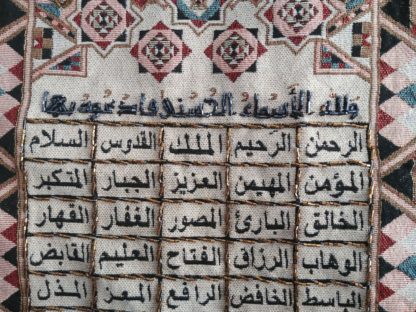 ولله الأسماء الحسنى فادعوه بها
الرحمن الرحيم الملك القدوس السلام
المؤمن المهيمن العزيز الجبار المتكبر
الخالق البارئ المصور الغفار القهار
الوهاب الرزاق الفتاح العليم القابض
الباسط الخافض الرافع المعز المذل